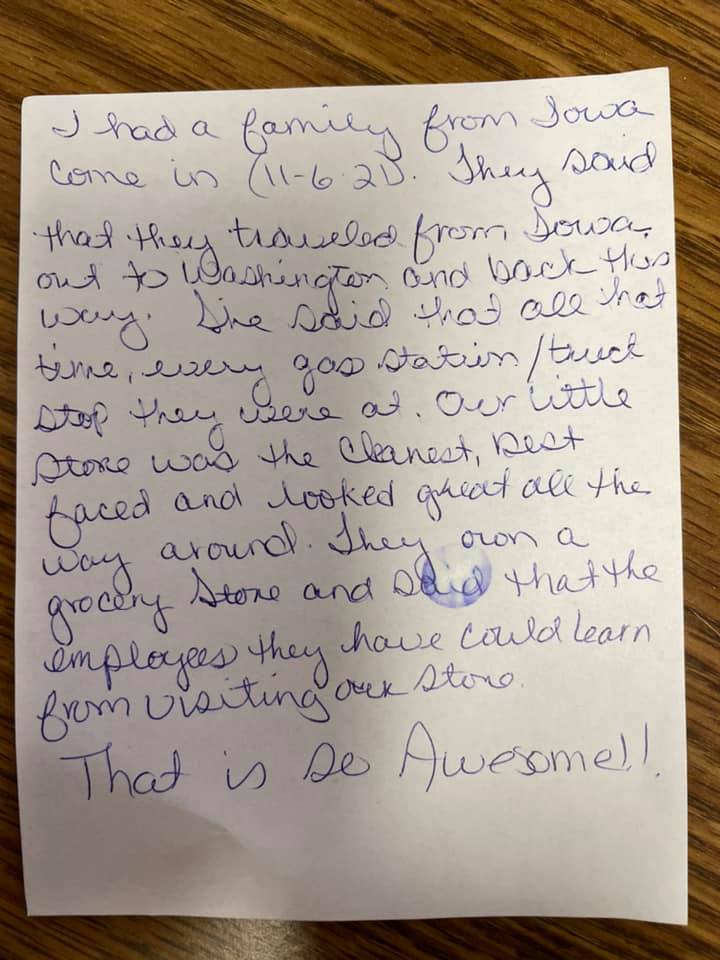 I had a family from Iowa
come in (11-6-21). They said
that they traveled from Iowa,
out to Washington and back this
way. She said that all that
time, every gas station/truck
stop they were at. Our little
store was the cleanest, best
faced and looked great all the
way around. They own a
grocery store and said that the
employees they have could learn
from visiting our store.
That is so Awesome!!.